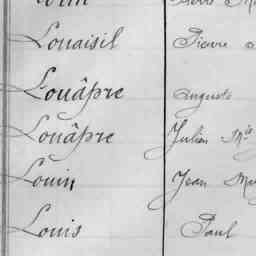 Louaisil Pierre
Louâpre Auguste
Louâpre Julien Mie
Louin Jean
Louis Paul